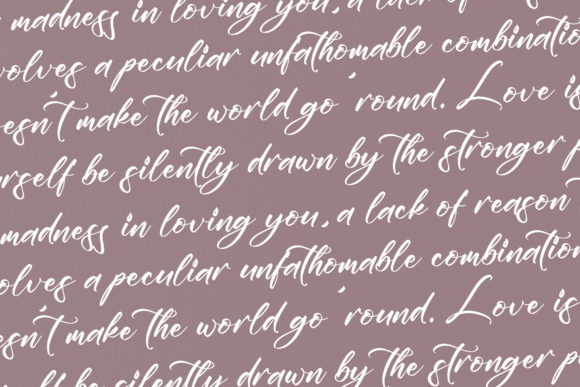 madness in loving you, a lack of
volves a peculiar unfathomable combinatio
oesn't make the world go 'round. Love is
erself be silently drawn by the stronger p
madness in loving you, a lack of reason
volves a peculiar unfathomable combination
esn't make the world go 'round. Love is
self be silently drawn by the stronger p